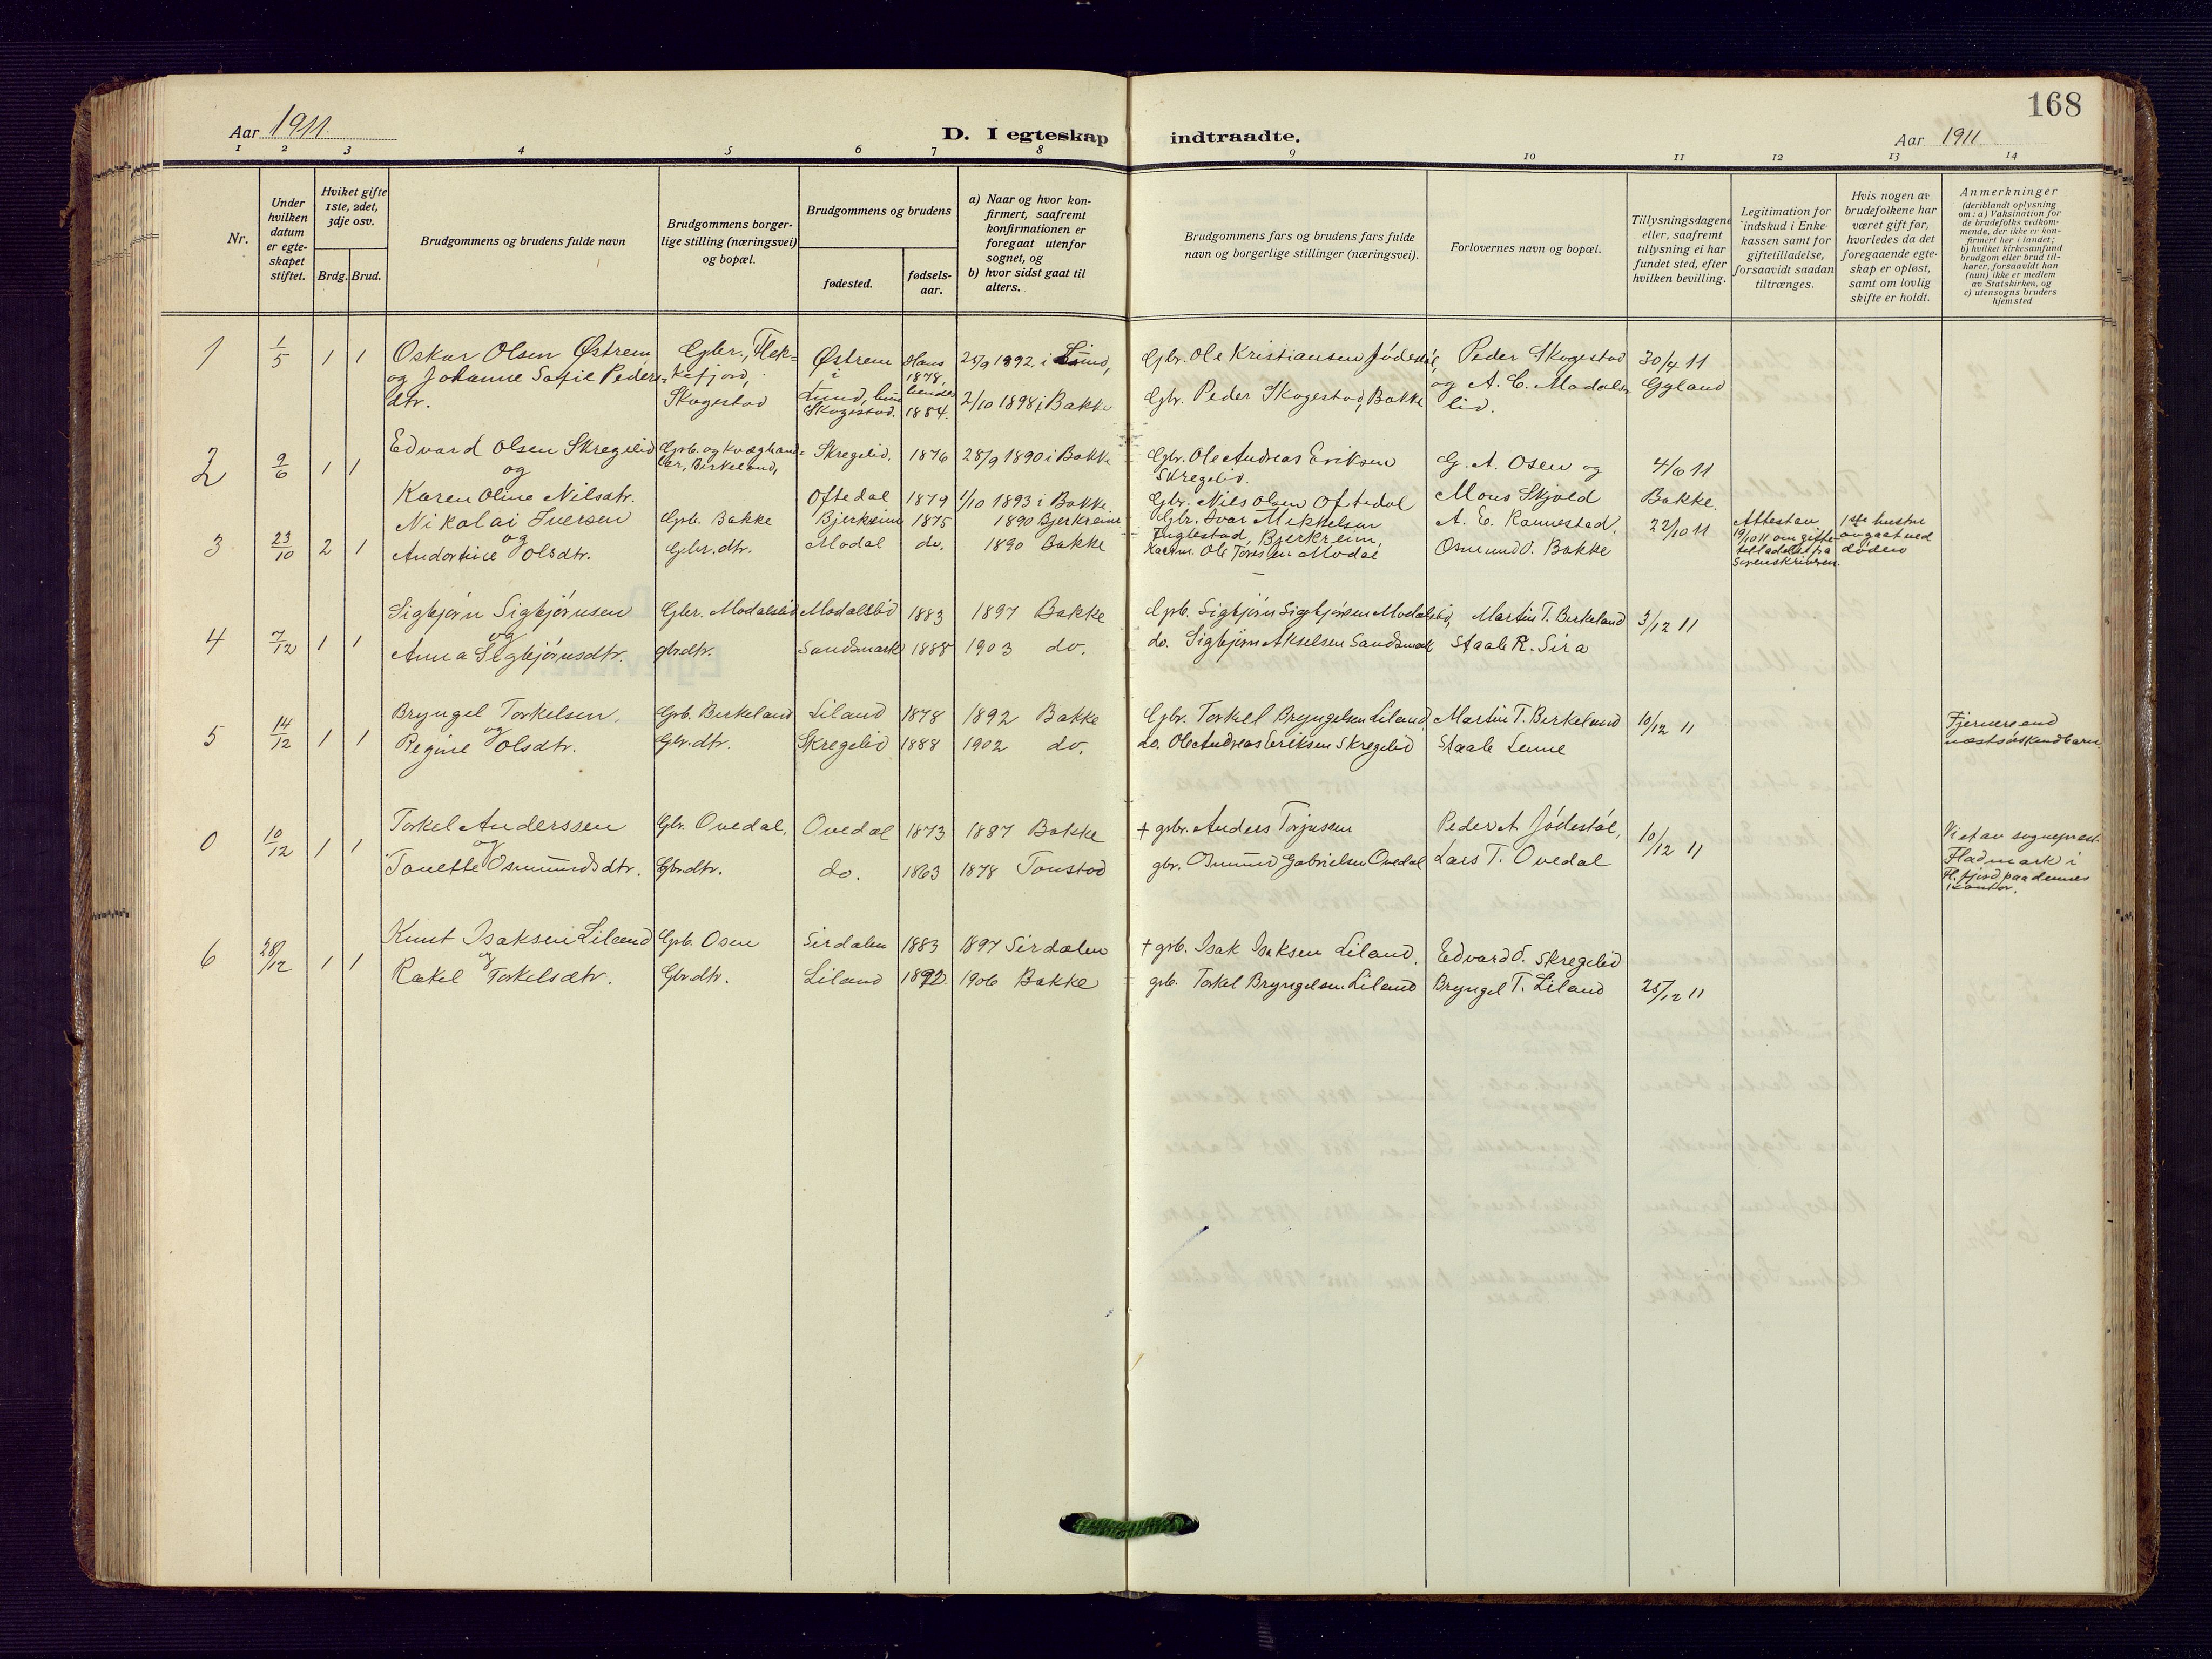 168
Aar 1911.
D. I egteskap indtraadte.
Aar 1911
1 2 3 4 5 6 7 8 9 10 11 12 13 14
Nr.
Under hvilken datum er egteskapet stiftet.
Hviket gifte 1ste, 2det, 3dje osv.
Brdg. Brud.
Brudgommens og brudens fulde navn
Brudgommens borgerlige stilling (næringsvei) og bopæl.
Brudgommens og brudens
fødested.
fødselsaar.
a) Naar og hvor konfirmert, saafremt konfirmationen er foregaat utenfor sognet, og
b) hvor sidst gaat til alters.
Brudgommens fars og brudens fars fulde navn og borgerlige stillinger (næringsvei).
Forlovernes navn og bopæl.
Tillysningsdagene eller, saafremt tillysning ei har fundet sted, efter hvilken bevilling.
Legitimation for indskud i Enkekassen samt for giftetilladelse, forsaavidt saadan tiltrænges.
Hvis nogen av brudefolkene har været gift før, hvorledes da det foregaaende egteskap er opløst, samt om lovlig skifte er holdt.
Anmerkninger (deriblandt oplysning om: a) Vaksination for de brudefolks vedkommende, der ikke er konfirmert her i landet; b) hvilket kirkesamfund brudgom eller brud tilhører, forsaavidt han (hun) ikke er medlem av Statskirken, og c) utensogns bruders hjemsted
1 1/5 1 1 Oskar Olsen Østrem Gbr., Flek- Østrem Hans 25/9 1892 i Lund, Gbr. Ole Kristiansen Jødestøl, Peder Skogestad 30/4 11
og Johanne Sofie Peders- kefjord, i 1878,
dtr. Skogestad Lund, hun hendes 2/10 1898 i Bakke Gbr. Peder Skogestad, Bakke og A. C. Modals- Gyland
Skogestad. 1884. lid.
2 9/6 1 1 Edvard Olsen Skregelid Gprb. og kvæghand- Skregelid. 1876 28/9 1890 i Bakke Gbr. Ole Andreas Eriksen G. A. Osen og 4/6 11
og ler, Birkeland, Skregelid.
Karen Oline Nilsdtr. Oftedal 1879 1/10 1893 i Bakke Gbr. Nils Olsen Oftedal Mons Skjold Bakke.
3 23/10 2 1 Nikolai Iversen Gprb. Bakke Bjerkreim 1875 1890 Bjerkreim Gbr. Ivar Mikkelsen A. E. Rannestad, 22/10 11 Attest av 1ste hustru
og Inglestad, Bjerkreim, 19/10 11 om gifte- avgaat ved
Andortine Olsdtr. Gbr.dtr. Modal do. 1890 Bakke Kaarm. Ole Toresen Modal Osmund O. Bakke tilladelse fra døden
Sorenskriveren.
4 7/12 1 1 Sigbjørn Sigbjørnsen Gbr. Modalslid Modalslid 1883 1897 Bakke Gprb. Sigbjørn Sigbjørnsen Modalslid, Martin T. Birkeland 3/12 11
og
Anna Sigbjørnsdtr. gbrdtr. Sandsmark 1888 1903 do. do. Sigbjørn Akselsen Sandsmark Staale R. Sira
5 14/12 1 1 Bryngel Torkelsen, Gprb. Berkeland Liland 1878 1892 Bakke Gbr. Torkel Bryngelsen Liland Martin T. Berkeland 10/12 11 Fjernere end
og
Regine Olsdtr. Gbr.dtr. Skregelid 1888 1902 do. do. Ole Andreas Eriksen Skregelid Staale Lunne næstsøskendbarn.
0 10/12 1 1 Torkel Anderssen Gbr. Ovedal, Ovedal 1873 1887 Bakke † gbr. Anders Torjussen Peder A Jødestøl, 10/12 11 Viet av sogneprest
og Fladmark i
Tonette Osmundsdtr. Gbrdtr. do. 1863 1878 Tonstad gbr. Osmund Gabrielsen Ovedal Lars T. Ovedal Fl.fjord paa dennes
kontor.
6 28/12 1 1 Knut Isaksen Liland Gprb. Osen Sirdalen 1883 1897 Sirdalen † grb. Isak Isaksen Liland. Edvard O. Skregelid
og
Rakel Torkelsdtr. Gbrdtr. Liland 1892 1906 Bakke grb. Torkel Bryngelsen Liland Bryngel T. Liland 25/12 11